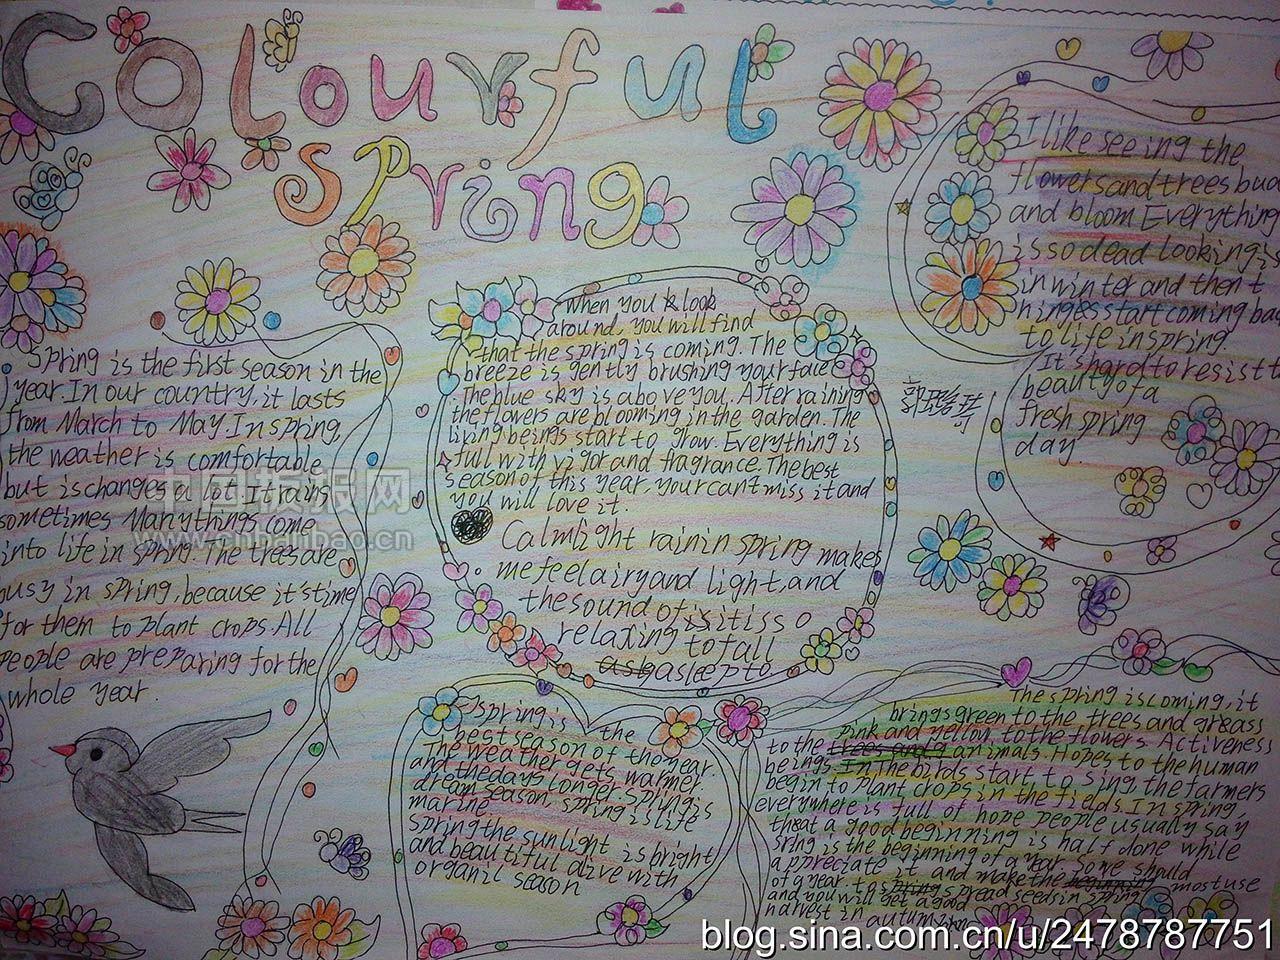 Colourful
spring
Spring is the first season in the
year. In our country, it lasts
from March to May. In spring,
the weather is comfortable
but is changes a lot. It rains
sometimes Many things come
into life in spring. The trees are
busy in spring, because it's time
for them to plant crops. All
people are preparing for the
whole year.
when you look
around, you will find
that the spring is coming. The
breeze is gently brushing your face
The blue sky is above you. After raining
the flowers are blooming in the garden. The
living beings start to grow. Everything is
full with vigor and fragrance. The best
season of this year, your can't miss it and
you will love it.
Calm light rain in spring makes
me feel airy and light, and
the sound of is it is so
relaxing to fall
asleep to
I like seeing the
flowers and trees bud
and bloom Everything
is so dead looking
in winter and then t
hings start coming ba
to life in spring.
It's hard to resist t
beauty of a
fresh spring
day
spring is the
best season of the year.
The weather gets warmer.
and the days longer spring is
dream season, spring is life
marine
spring the sunlight is bright
and beautiful alive with
organil season
The spring is coming, it
brings green to the trees and grass
pink and yellow to the flowers. Activeness
to the trees and g animals Hopes to the human
beings In the birds start to sing, the farmers
begin to plant crops in the fields In spring,
everywhere is full of hope people usually say
that a good beginning is half done while
sring is the beginning of a year So we should
appreciate it and make the most use
of a year. to spread seeds in spring
and you will get a good
harvest in autumn
中国板报网
www.cnbanbao.cn
blog.sina.com.cn/u/2478787751